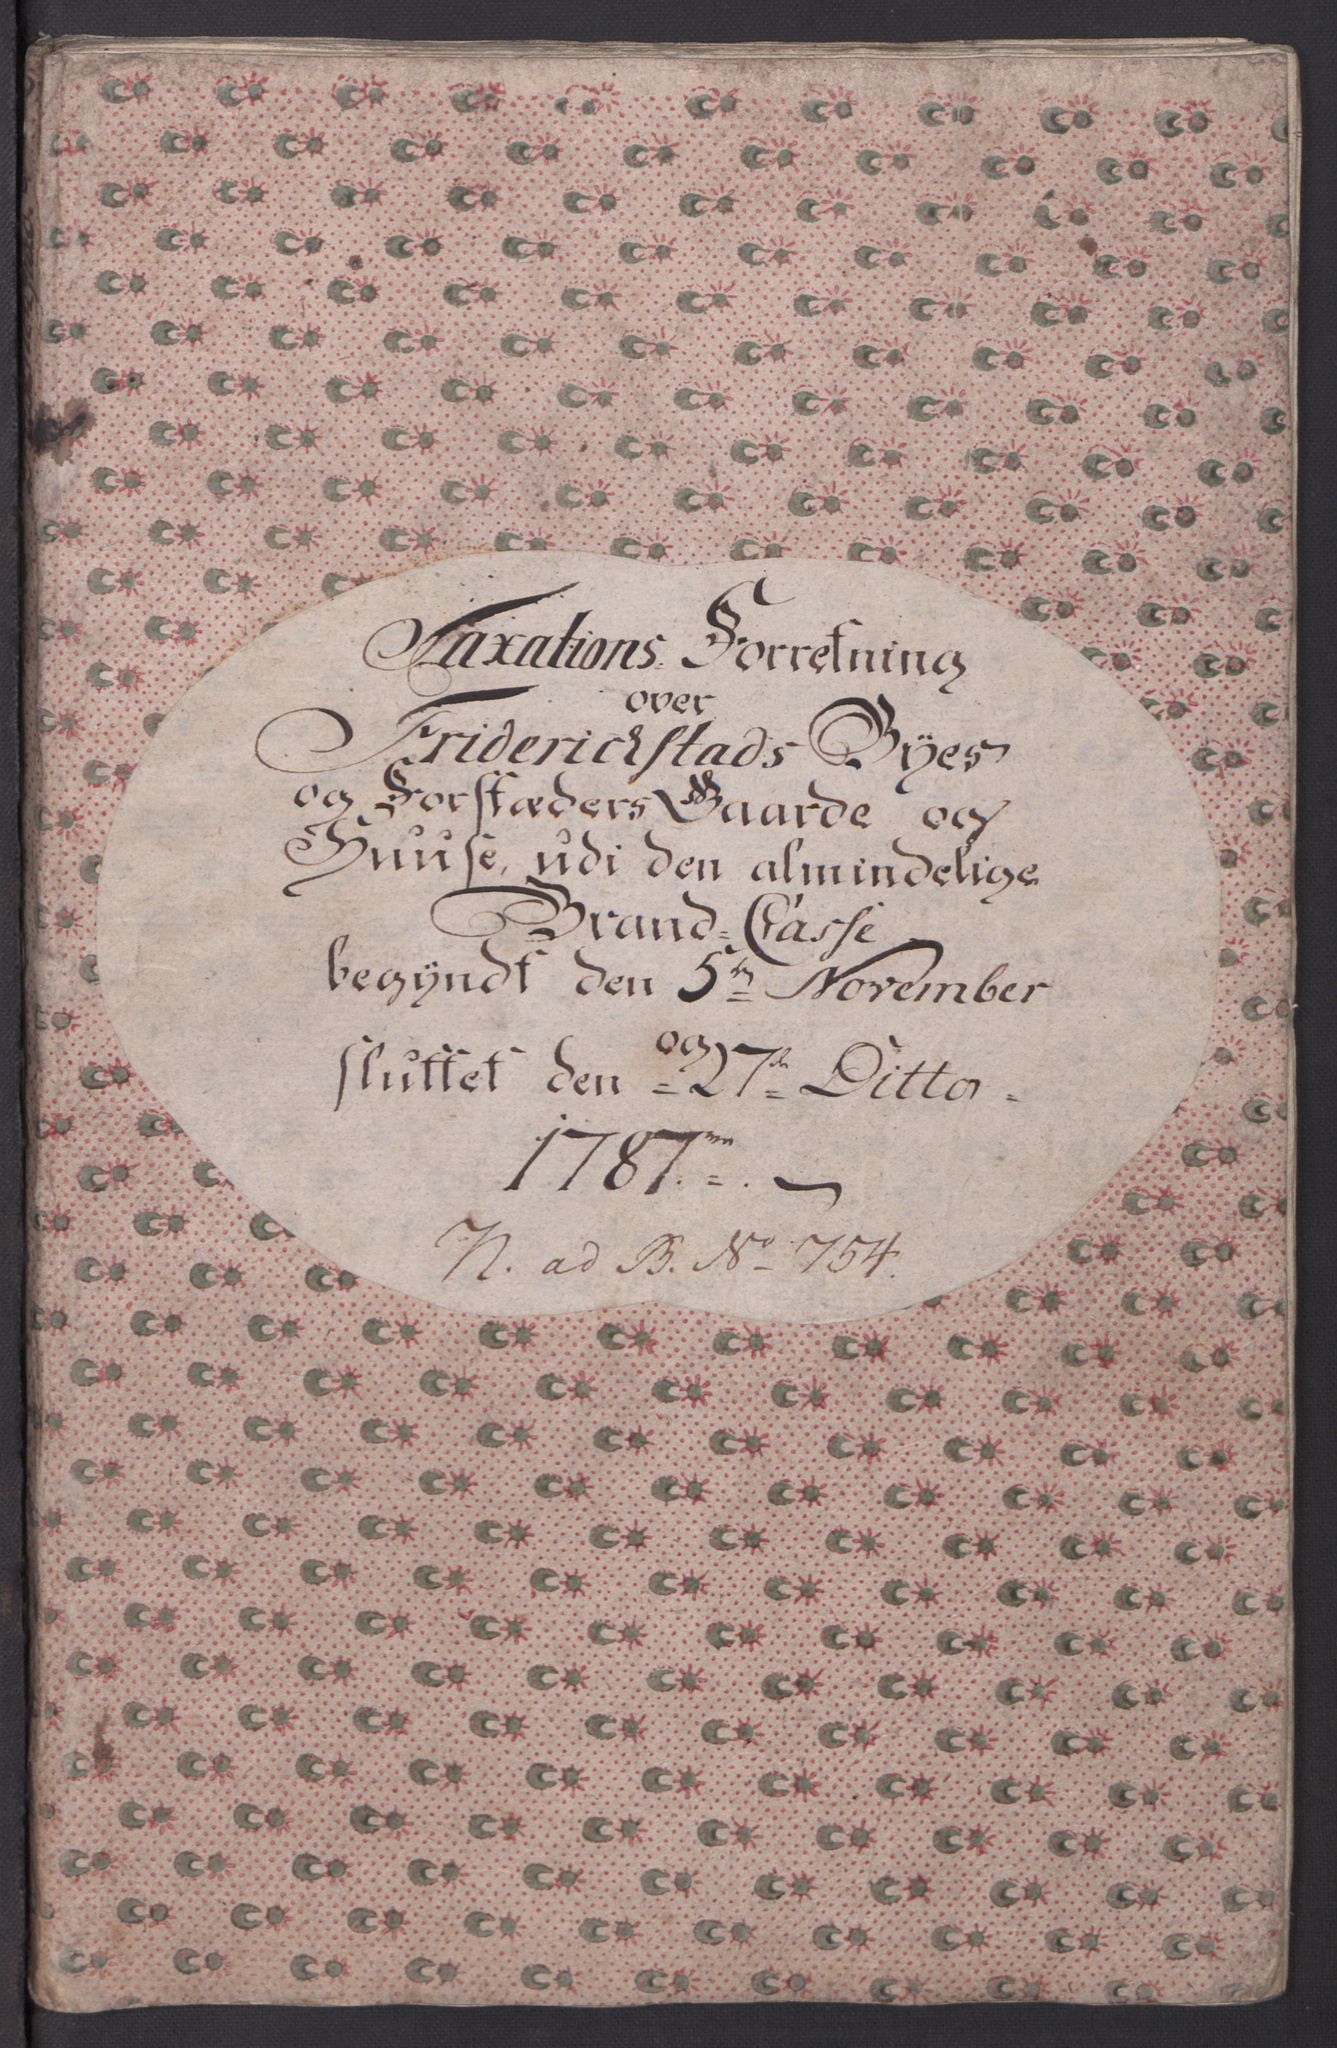 Taxations Forretning
over
Friderichstads Byes
og Forstæders Gaarde og
Huuse, udi den almindelige
Brand-Casse
begÿndt den 5te November
og
sluttet den 27de Ditto
1787
N. ad B. No 754.